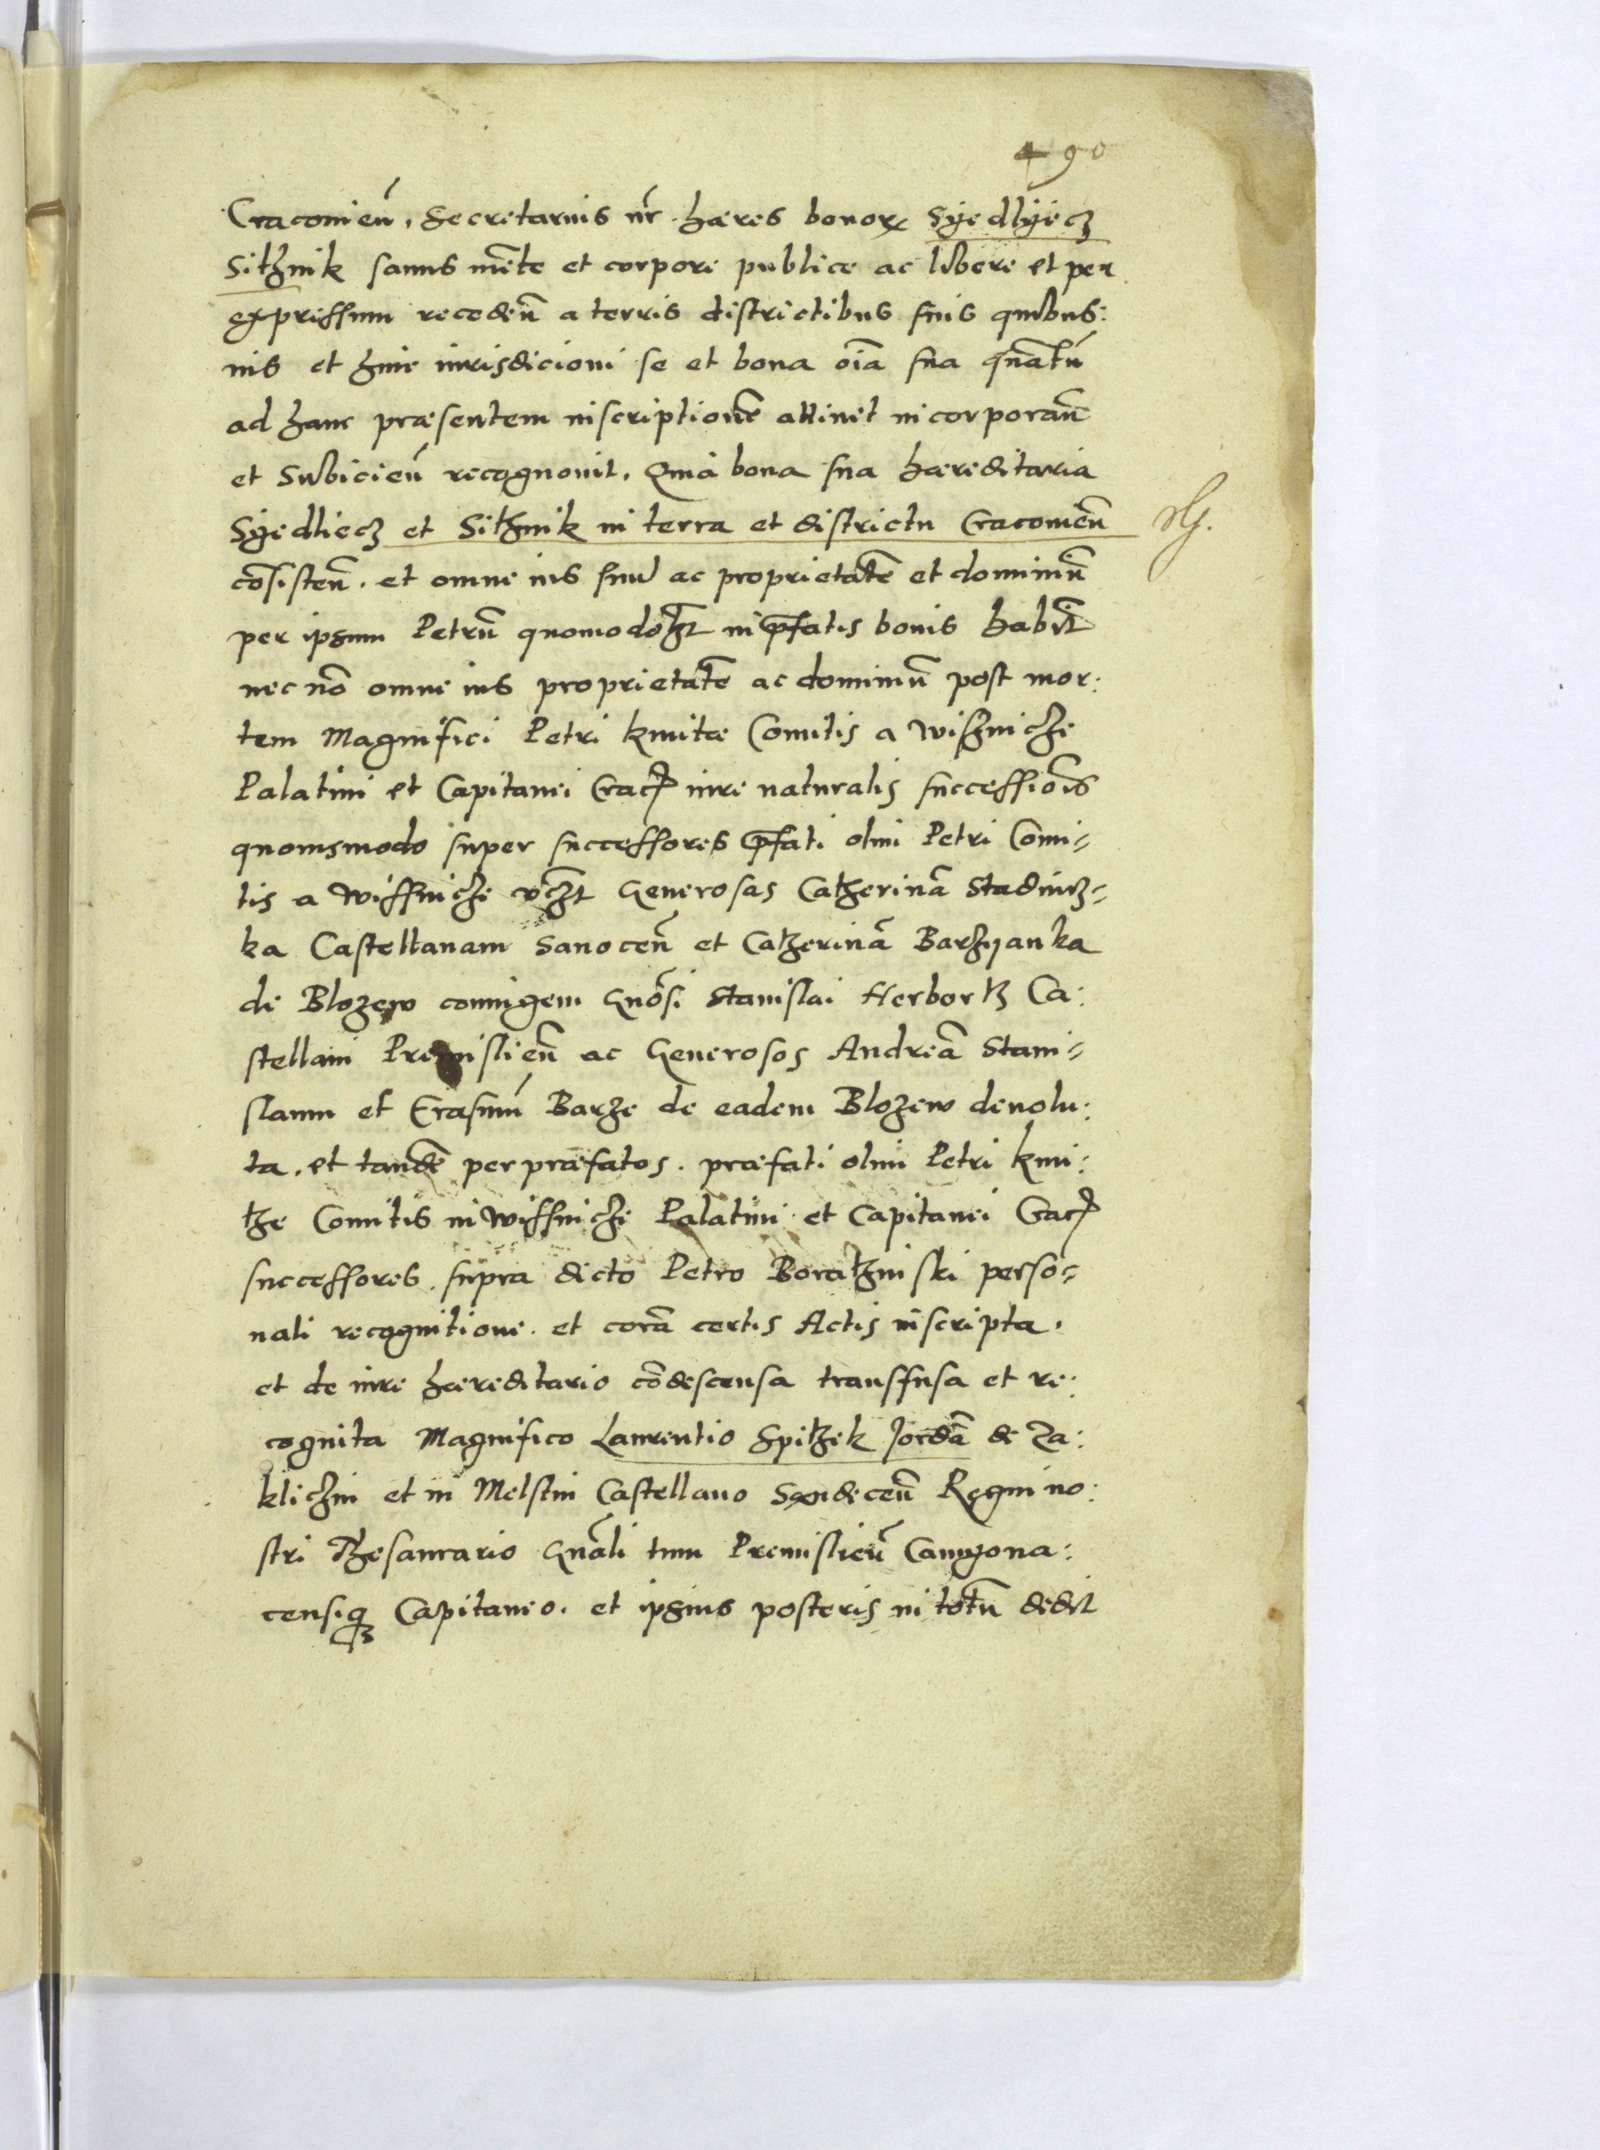 490
Cracouieñ. Secretarius nr̃ hæres bonorꝝ Syedlyecz
Sithnik sanus mẽte et corpore publice ac libere et per
expressum recedeñ a terris districtibus suis quibus:
uis et huic iurisdicioni se et bona oĩa sua quãtũ
ad hanc præsentem inscriptionẽ attinet incorporañ
et subicieñ recognouit. Quia bona sua hæreditaria
Syedliecz et Sithnik in terra et districtu Cracouieñ
cõsisteñ. et omne ius suũ ac proprietatẽ et dominiũ
per ipsum Petrũ quomodolꝫ in p̃fatis bonis habit̃
nec nõ omne ius proprietatẽ ac dominiũ post mor:
tem Magnifici Petri kmitæ Comitis a wisniche
Palatini et Capitanei Crac̃ iure naturalis successiõis
quouismodo super successores p̃fati olim Petri Comi-
tis a wissniche vꝫ Generosas Catherinã Stadnitz-
ka Castellanam Sanoceñ et Catherinã Barzyanka
de Blozew coniugem Gnõsi Stanislai Herborth Ca:
stellani Premislieñ ac Generosos Andreã Stani-
slaum et Erasmũ Barze de eadem Blozew deuolu:
ta. et tandẽ per præfatos. præfati olim Petri kmi:
thæ Comitis in wissniche Palatini et Capitanei Crac̃
successores. supra dicto Petro Borathinski perso-
nali recognitione. et corã certis Actis inscripta.
et de iure hæreditario cõdescensa transfusa et re:
cognita Magnifico Laurentio Spithek Jordã de Za:
klichin et in Melstin Castellano Sandeceñ Regni no:
stri Thesaurario Gnãli tum Premislieñ Camyona:
censiqꝫ Capitaneo. et ipsius posteris in totũ dedit